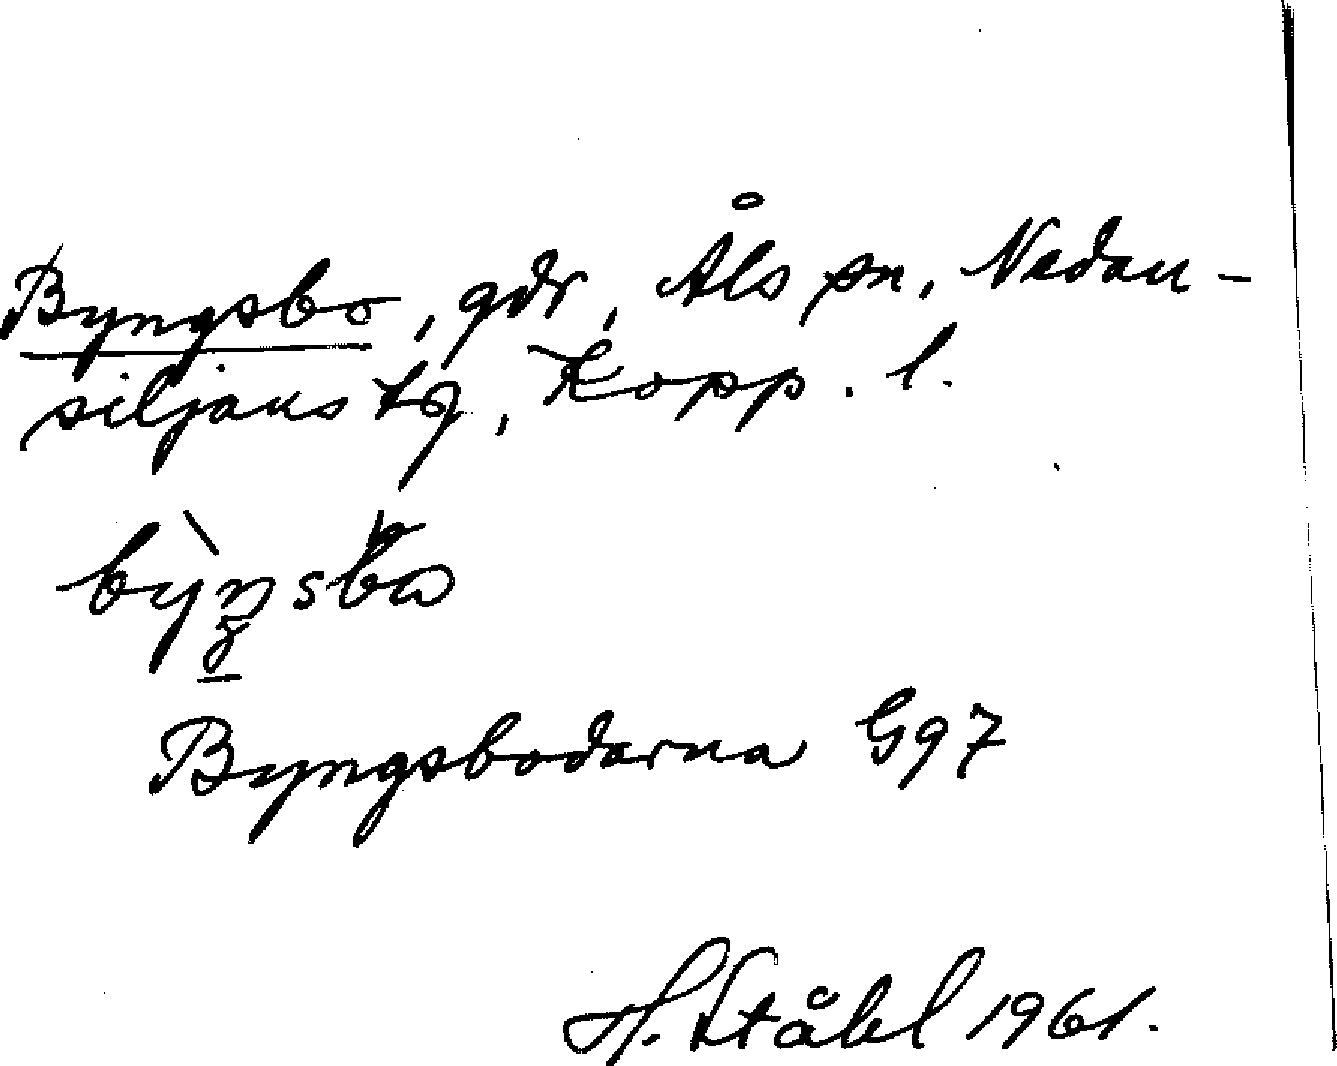 Byngsbo, gdr, Åls sn, Nedan-
siljans tg, Kopp. l.
Byngsbodarna G97
H. Ståhl 1961.